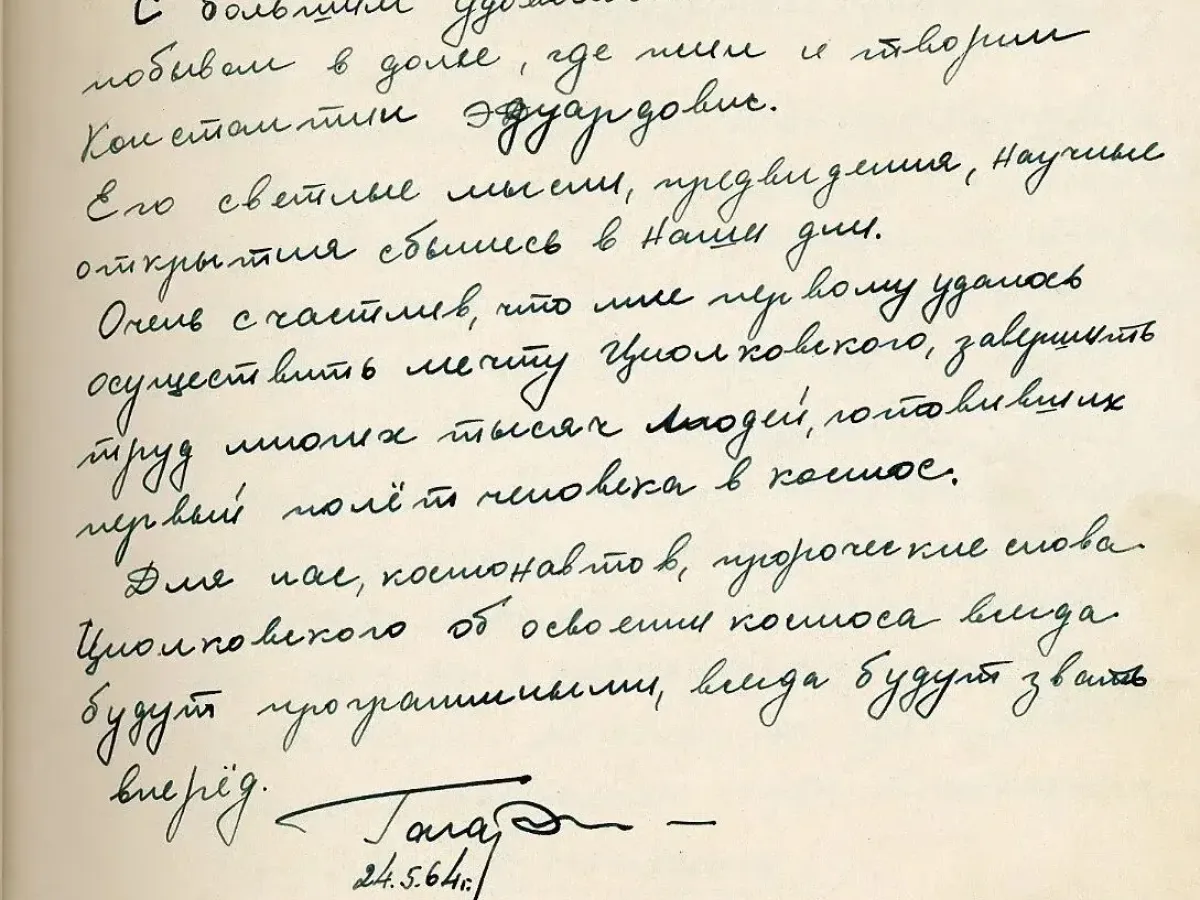 С большим удовольс
побывал в доме, где жил и творил
Константин Эдуардович.
Его светлые мысли, предвидения, научные
открытия сбылись в наши дни.
Очень счастлив, что мне первому удалось
осуществить мечту Циолковского, завершить
труд многих тысяч людей, готовивших
первый полёт человека в космос.
Для нас, космонавтов, пророческие слова
Циолковского об освоении космоса всегда
будут программными, всегда будут звать
вперёд.
Гагарин
24.5.64г.